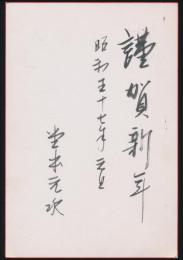 謹賀新年
昭和五十七年元旦
堂本元次